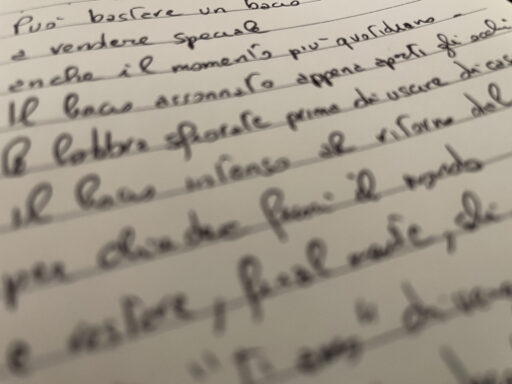 Può bastare un bacio
a vendere speciale
anche il momento più quotidiano
Il bacio assonnato appena aperti gli occhi
le labbra sfiorate prima di uscire di casa
il bacio intenso al ritorno dal
per chiudere fuori il mondo
e restare, finalmente, di
"Ti amo"